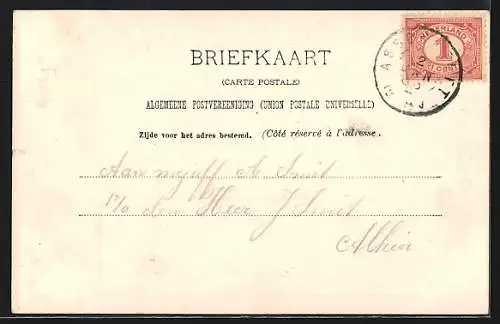 NEDERLAND
1
CENT
ASS
BRIEFKAART
(CARTE POSTALE)
ALGEMEENE POSTVEREENIGING (UNION POSTALE UNIVERSELLE)
Zijde voor het adres bestemd. (Côté réservé à l'adresse.
Aan mejuff A Smit
p/a den Heer J Smit
Alhier